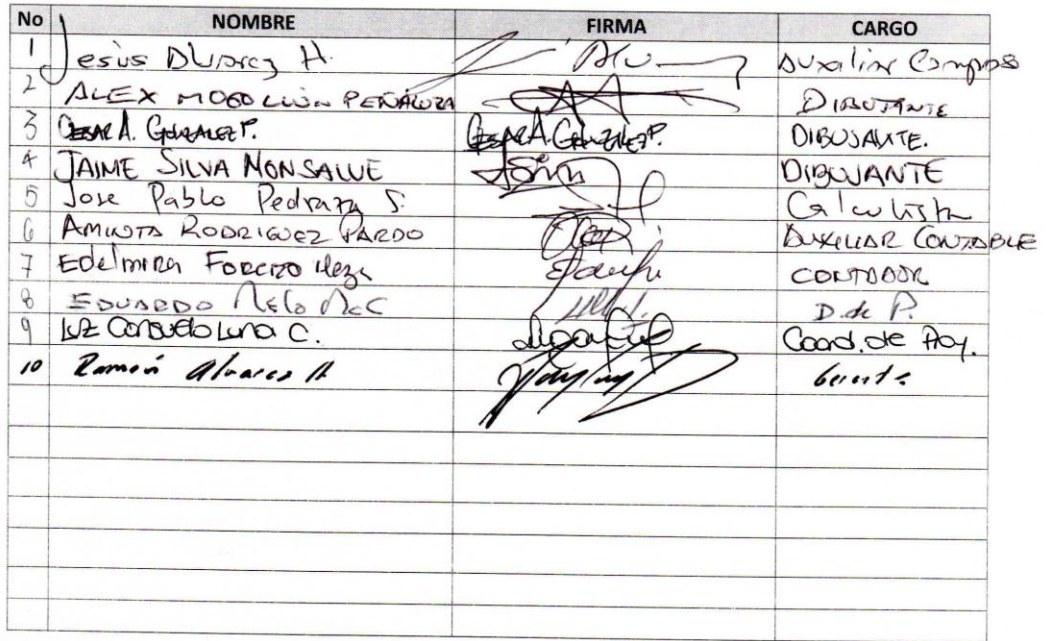 No NOMBRE FIRMA CARGO
1 Jesús Alvarez H. Auxiliar Compras
2 ALEX MOGOLLÓN PEÑALOZA DIBUJANTE
3 CESAR A. GONZALEZ P. CESAR A. GONZALEZ P. DIBUJANTE.
4 JAIME SILVA MONSALVE DIBUJANTE
5 Jose Pablo Pedraza S. Calculista
6 AMINTA RODRIGUEZ PARDO AUXILIAR CONTABLE
7 Edelmira FORERO CONTADOR
8 EDUARDO Melo D. de P.
9 LUZ Consuelo Luna C. Coord. de Proy.
10 Ramón Alvarez H Gerente